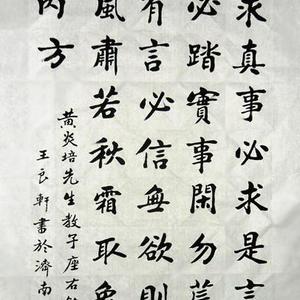 求真事必求是言
必踏實事閑勿荒
有言必信無欲則
風肅若秋霜取象
內方
黄炎培先生教子座右銘
王良軒書於濟南